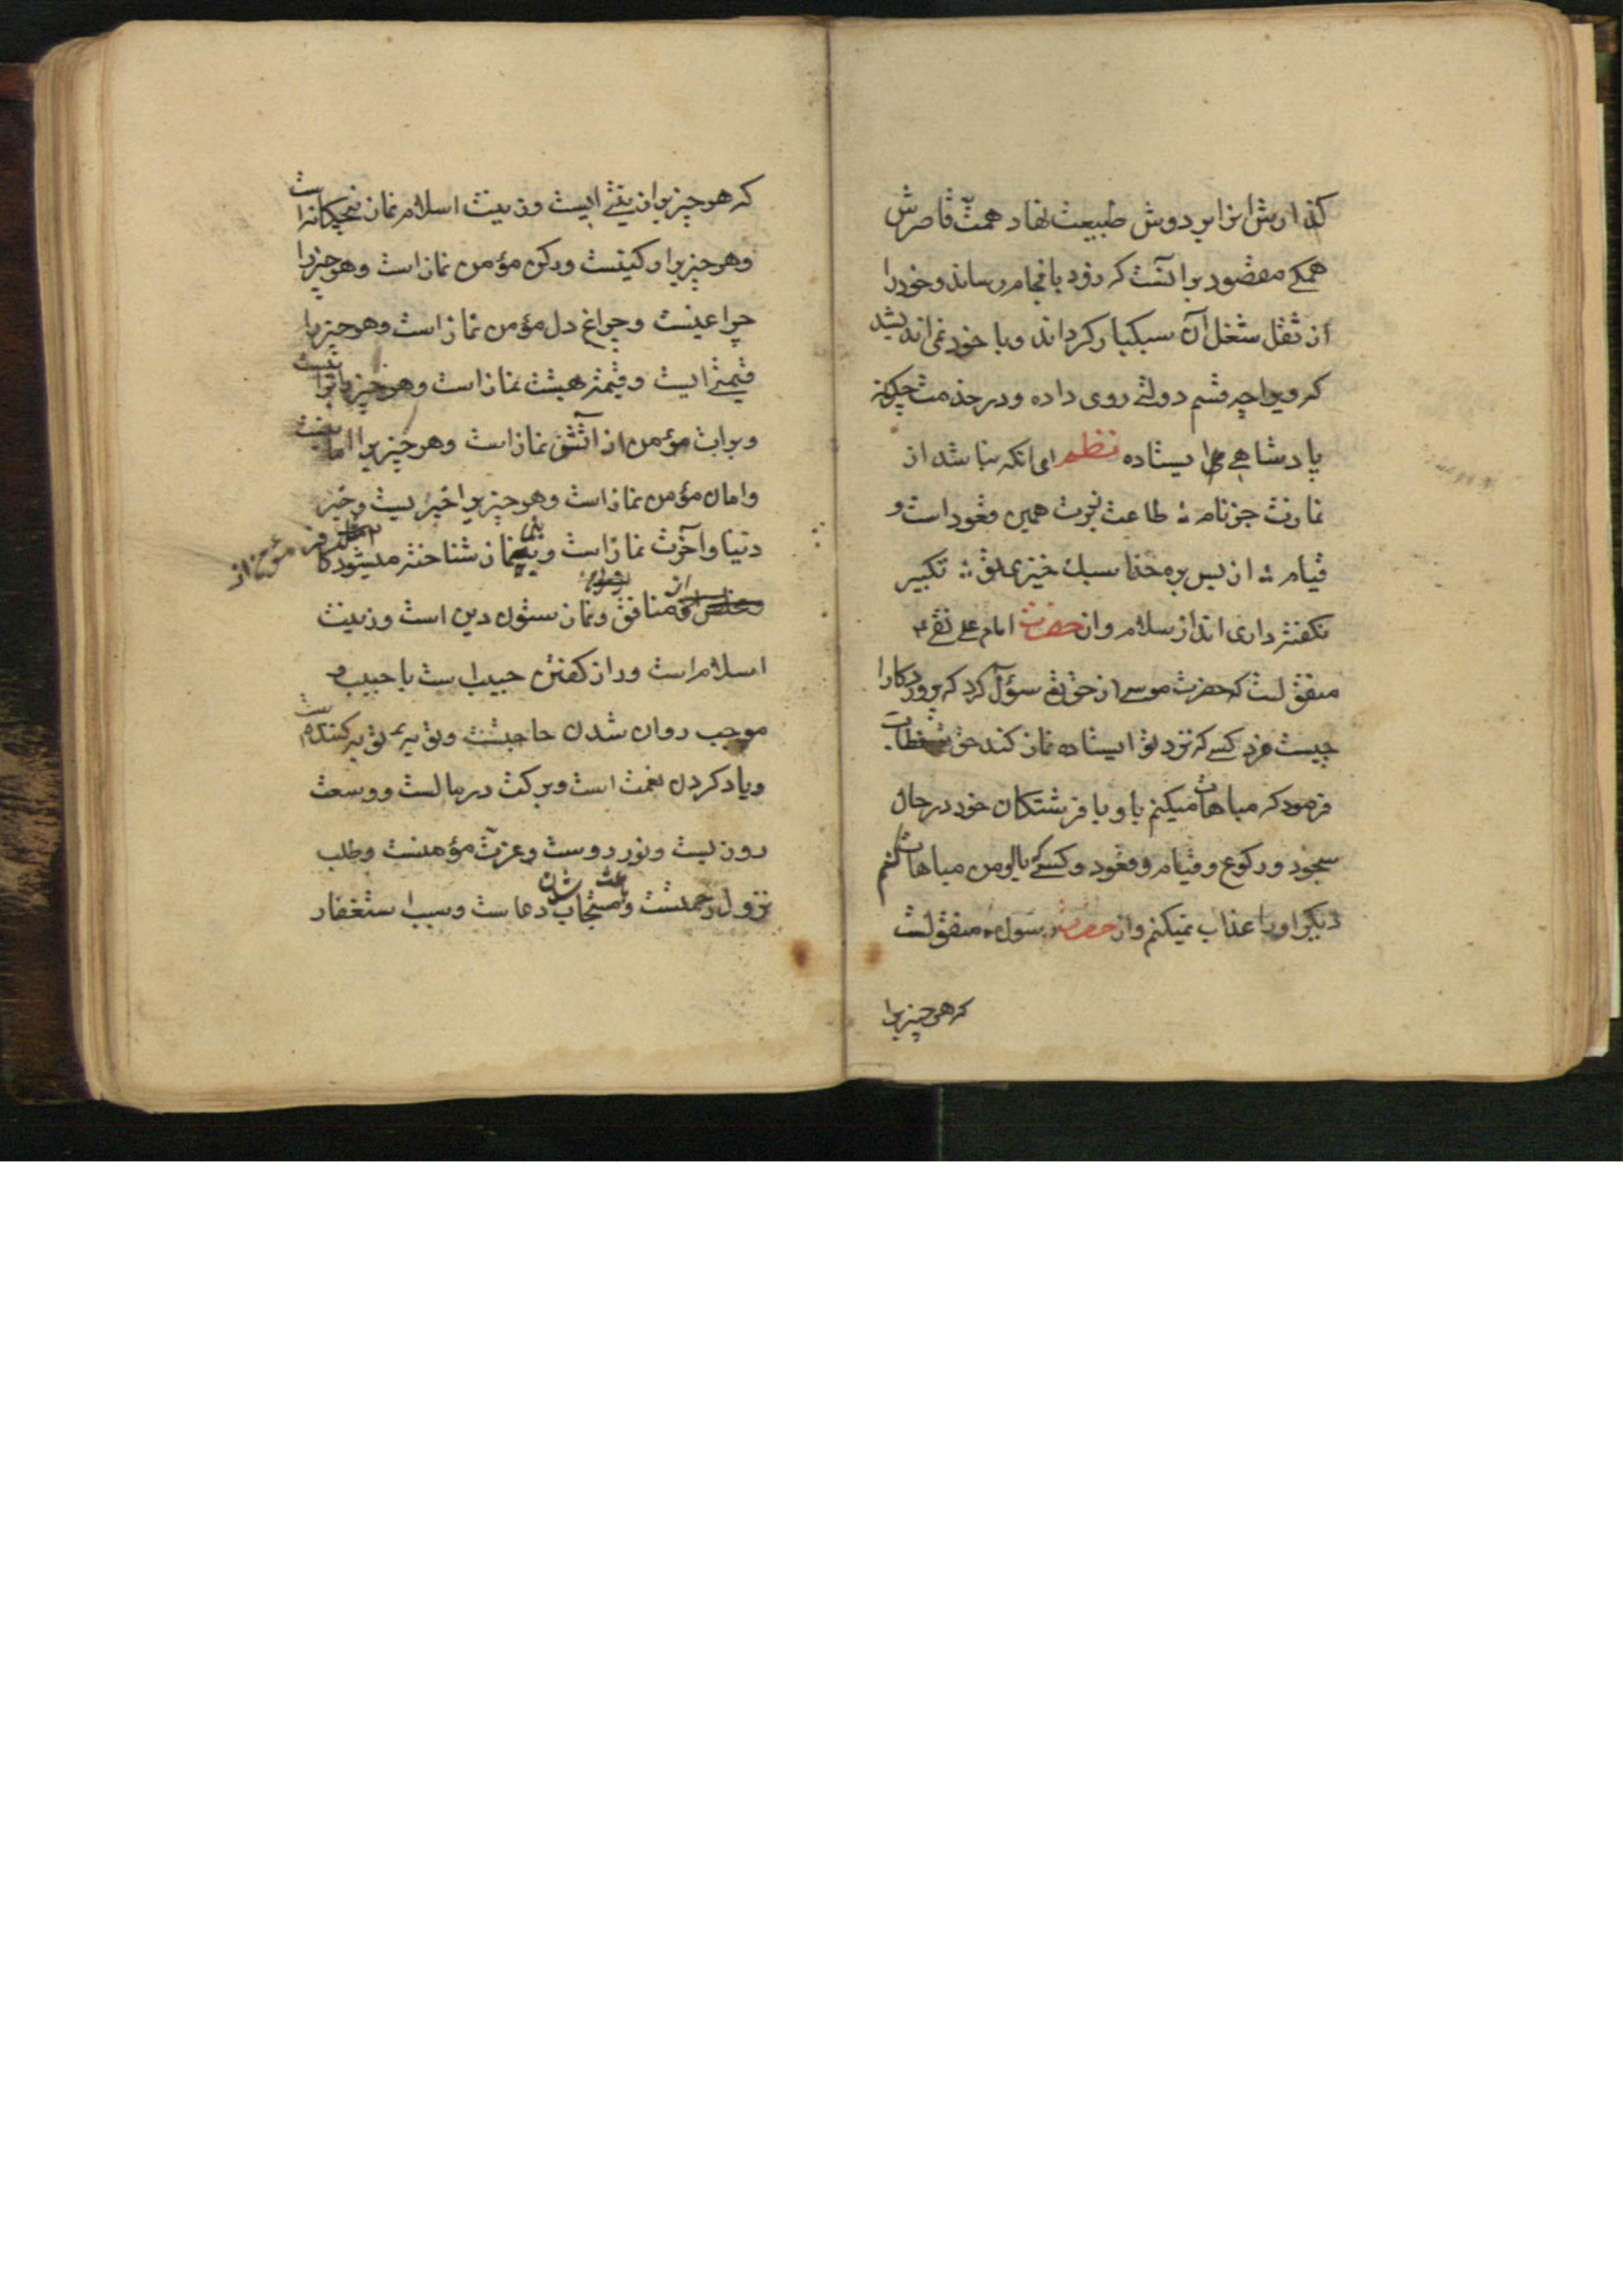 كذارش انرا بر دوش طبيعت نهاد همت قاصرش
همكے مقصور بر آنست كه زود بانجام رساند و خود را
از ثقل شغل آن سبكبار كرداند و با خود نمى انديشد
كه ويرا چه قسم دولتے روى داده و در خدمت چكونه
پادشاهے ايستاده نظم اى انكه نباشد از
نمازت جز نام ∴ طاعت نبرت همين قعود است و
قيام ∴ از بس بره خدا سبك خيزى تو ∴ تكبير
نكفته دارى انداز سلام و از حضرت امام على نقى ع
منقولست كه حضرت موسے از حق تع سؤال كرد كه پروردكارا
چيست مزد كسے كه نزد تو ايستاده نماز كند حق
فرمود كه مباهات ميكنم باو با فرشتكان خود در حال
سجود و ركوع و قيام و قعود و كسے كه باو من مباهات كنم
ديكر او را عذاب نميكنم و از حضرت رسول منقولست
كه هر چيز يرا
كه هر چيز يرا زينتے ايست و زينت اسلام نماز پنجكانه است
و هر چيز يرا ركنيست و ركن مؤمن نماز است و هر چيز يرا
چراغيست و چراغ دل مؤمن نماز است و هر چيز يرا
قيمتے ايست و قيمت بهشت نماز است و هر چيز يرا براتيست
و برات مؤمن از آتش نماز است و هر چيز يرا امانيست
و امان مؤمن نماز است و هر چيز يرا خيريست و خير
دنيا و آخرت نماز است و بنماز شناخته ميشود كافر
مؤمن از
از منافق و نماز ستون دين است و زينت
اسلام است و راز كفتن حبيب است با حبيب و
موجب روان شدن حاجتست و توبهٔ توبه كننده است
و ياد كردن نعمت است و بركت در مالست و وسعت
روزيست و نور روست و عزت مؤمنست و طلب
نزول رحمتست و باعث مستجاب شدن دعاست و سبب استغفار